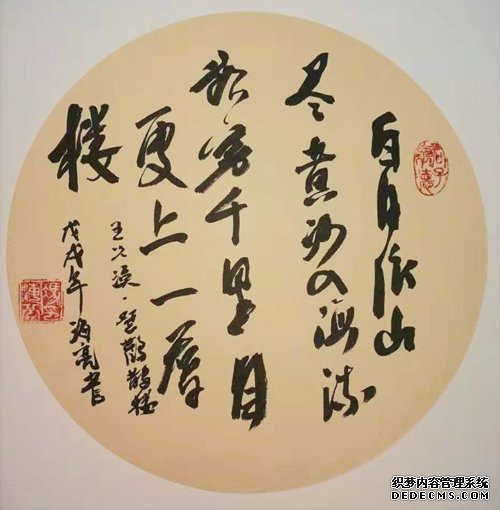 白日依山
尽黄河入海流
欲穷千里目
更上一层
楼
王之涣·登鹳鹊楼
戊戌年海亮书
织梦内容管理系统
DEDECMS.COM